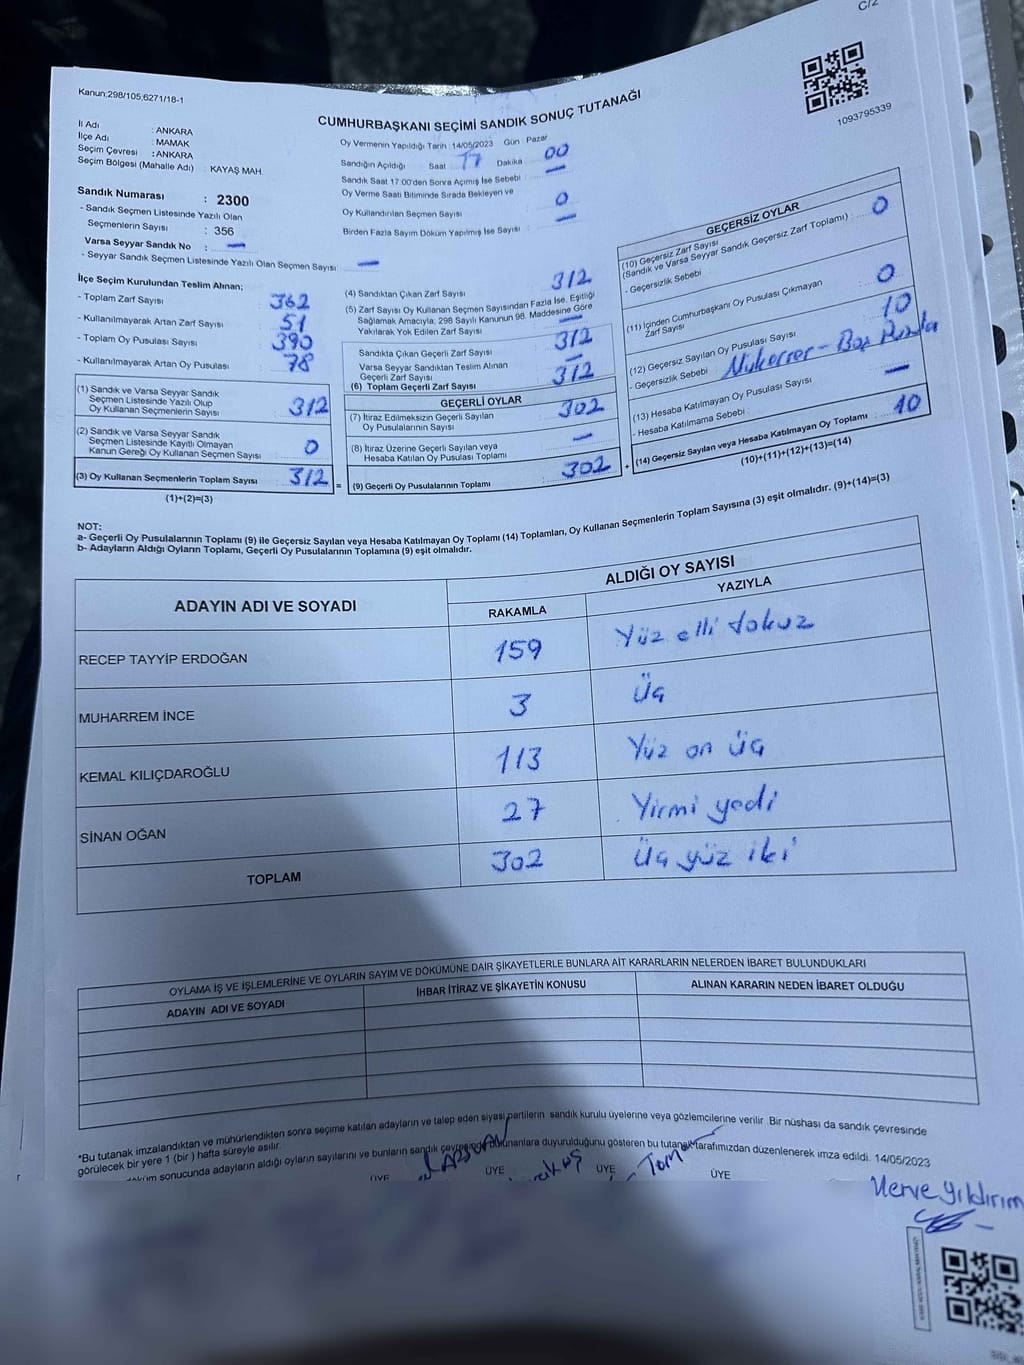 C/2
Kanun:298/105,6271/18-1
1093795339
CUMHURBAŞKANI SEÇİMİ SANDIK SONUÇ TUTANAĞI
İl Adı : ANKARA
İlçe Adı : MAMAK
Seçim Çevresi : ANKARA
Seçim Bölgesi (Mahalle Adı) : KAYAŞ MAH.
Sandık Numarası : 2300
- Sandık Seçmen Listesinde Yazılı Olan
Seçmenlerin Sayısı : 356
Varsa Seyyar Sandık No : —
- Seyyar Sandık Seçmen Listesinde Yazılı Olan Seçmen Sayısı —
Oy Vermenin Yapıldığı Tarih :14/05/2023 Gün Pazar
Sandığın Açıldığı Saat 17 Dakika 00
Sandık Saat 17:00'den Sonra Açımış İse Sebebi —
Oy Verme Saati Bitiminde Sırada Bekleyen ve
Oy Kullandırılan Seçmen Sayısı 0
Birden Fazla Sayım Döküm Yapılmış İse Sayısı —
İlçe Seçim Kurulundan Teslim Alınan;
- Toplam Zarf Sayısı 362
- Kullanılmayarak Artan Zarf Sayısı : 51
- Toplam Oy Pusulası Sayısı 390
- Kullanılmayarak Artan Oy Pusulası 78
(1) Sandık ve Varsa Seyyar Sandık
Seçmen Listesinde Yazılı Olup
Oy Kullanan Seçmenlerin Sayısı 312
(2) Sandık ve Varsa Seyyar Sandık
Seçmen Listesinde Kayıtlı Olmayan
Kanun Gereği Oy Kullanan Seçmen Sayısı 0
(3) Oy Kullanan Seçmenlerin Toplam Sayısı 312 =
(1)+(2)=(3)
(4) Sandıktan Çıkan Zarf Sayısı 312
(5) Zarf Sayısı Oy Kullanan Seçmen Sayısından Fazla İse, Eşitliği
Sağlamak Amacıyla; 298 Sayılı Kanunun 98. Maddesine Göre
Yakılarak Yok Edilen Zarf Sayısı —
Sandıkta Çıkan Geçerli Zarf Sayısı 312
Varsa Seyyar Sandıktan Teslim Alınan
Geçerli Zarf Sayısı —
(6) Toplam Geçerli Zarf Sayısı 312
GEÇERLİ OYLAR
(7) İtiraz Edilmeksizin Geçerli Sayılan
Oy Pusulalarının Sayısı 302
(8) İtiraz Üzerine Geçerli Sayılan veya
Hesaba Katılan Oy Pusulası Toplamı —
(9) Geçerli Oy Pusulalarının Toplamı 302 +
GEÇERSİZ OYLAR
(10) Geçersiz Zarf Sayısı
(Sandık ve Varsa Seyyar Sandık Geçersiz Zarf Toplamı) : 0
- Geçersizlik Sebebi
(11) İçinden Cumhurbaşkanı Oy Pusulası Çıkmayan
Zarf Sayısı 0
(12) Geçersiz Sayılan Oy Pusulası Sayısı 10
- Geçersizlik Sebebi : Mükerrer - Boş Pusula
(13) Hesaba Katılmayan Oy Pusulası Sayısı —
- Hesaba Katılmama Sebebi :
(14) Geçersiz Sayılan veya Hesaba Katılmayan Oy Toplamı : 10
(10)+(11)+(12)+(13)=(14)
NOT:
a- Geçerli Oy Pusulalarının Toplamı (9) ile Geçersiz Sayılan veya Hesaba Katılmayan Oy Toplamı (14) Toplamları, Oy Kullanan Seçmenlerin Toplam Sayısına (3) eşit olmalıdır. (9)+(14)=(3)
b- Adayların Aldığı Oyların Toplamı, Geçerli Oy Pusulalarının Toplamına (9) eşit olmalıdır.
ADAYIN ADI VE SOYADI ALDIĞI OY SAYISI
RAKAMLA YAZIYLA
RECEP TAYYİP ERDOĞAN 159 Yüz elli dokuz
MUHARREM İNCE 3 Üç
KEMAL KILIÇDAROĞLU 113 Yüz on üç
SİNAN OĞAN 27 Yirmi yedi
TOPLAM 302 Üç yüz iki
OYLAMA İŞ VE İŞLEMLERİNE VE OYLARIN SAYIM VE DÖKÜMÜNE DAİR ŞİKAYETLERLE BUNLARA AİT KARARLARIN NELERDEN İBARET BULUNDUKLARI
ADAYIN ADI VE SOYADI İHBAR İTİRAZ VE ŞİKAYETİN KONUSU ALINAN KARARIN NEDEN İBARET OLDUĞU
*Bu tutanak imzalandıktan ve mühürlendikten sonra seçime katılan adayların ve talep eden siyasi partilerin sandık kurulu üyelerine veya gözlemcilerine verilir. Bir nüshası da sandık çevresinde
görülecek bir yere 1 (bir) hafta süreyle asılır.
sonucunda adayların aldığı oyların sayılarını ve bunların sandık çevresinde bulunanlara duyurulduğunu gösteren bu tutanak tarafımızdan düzenlenerek imza edildi. 14/05/2023
ÜYE ÜYE ÜYE ÜYE
Merve Yıldırım